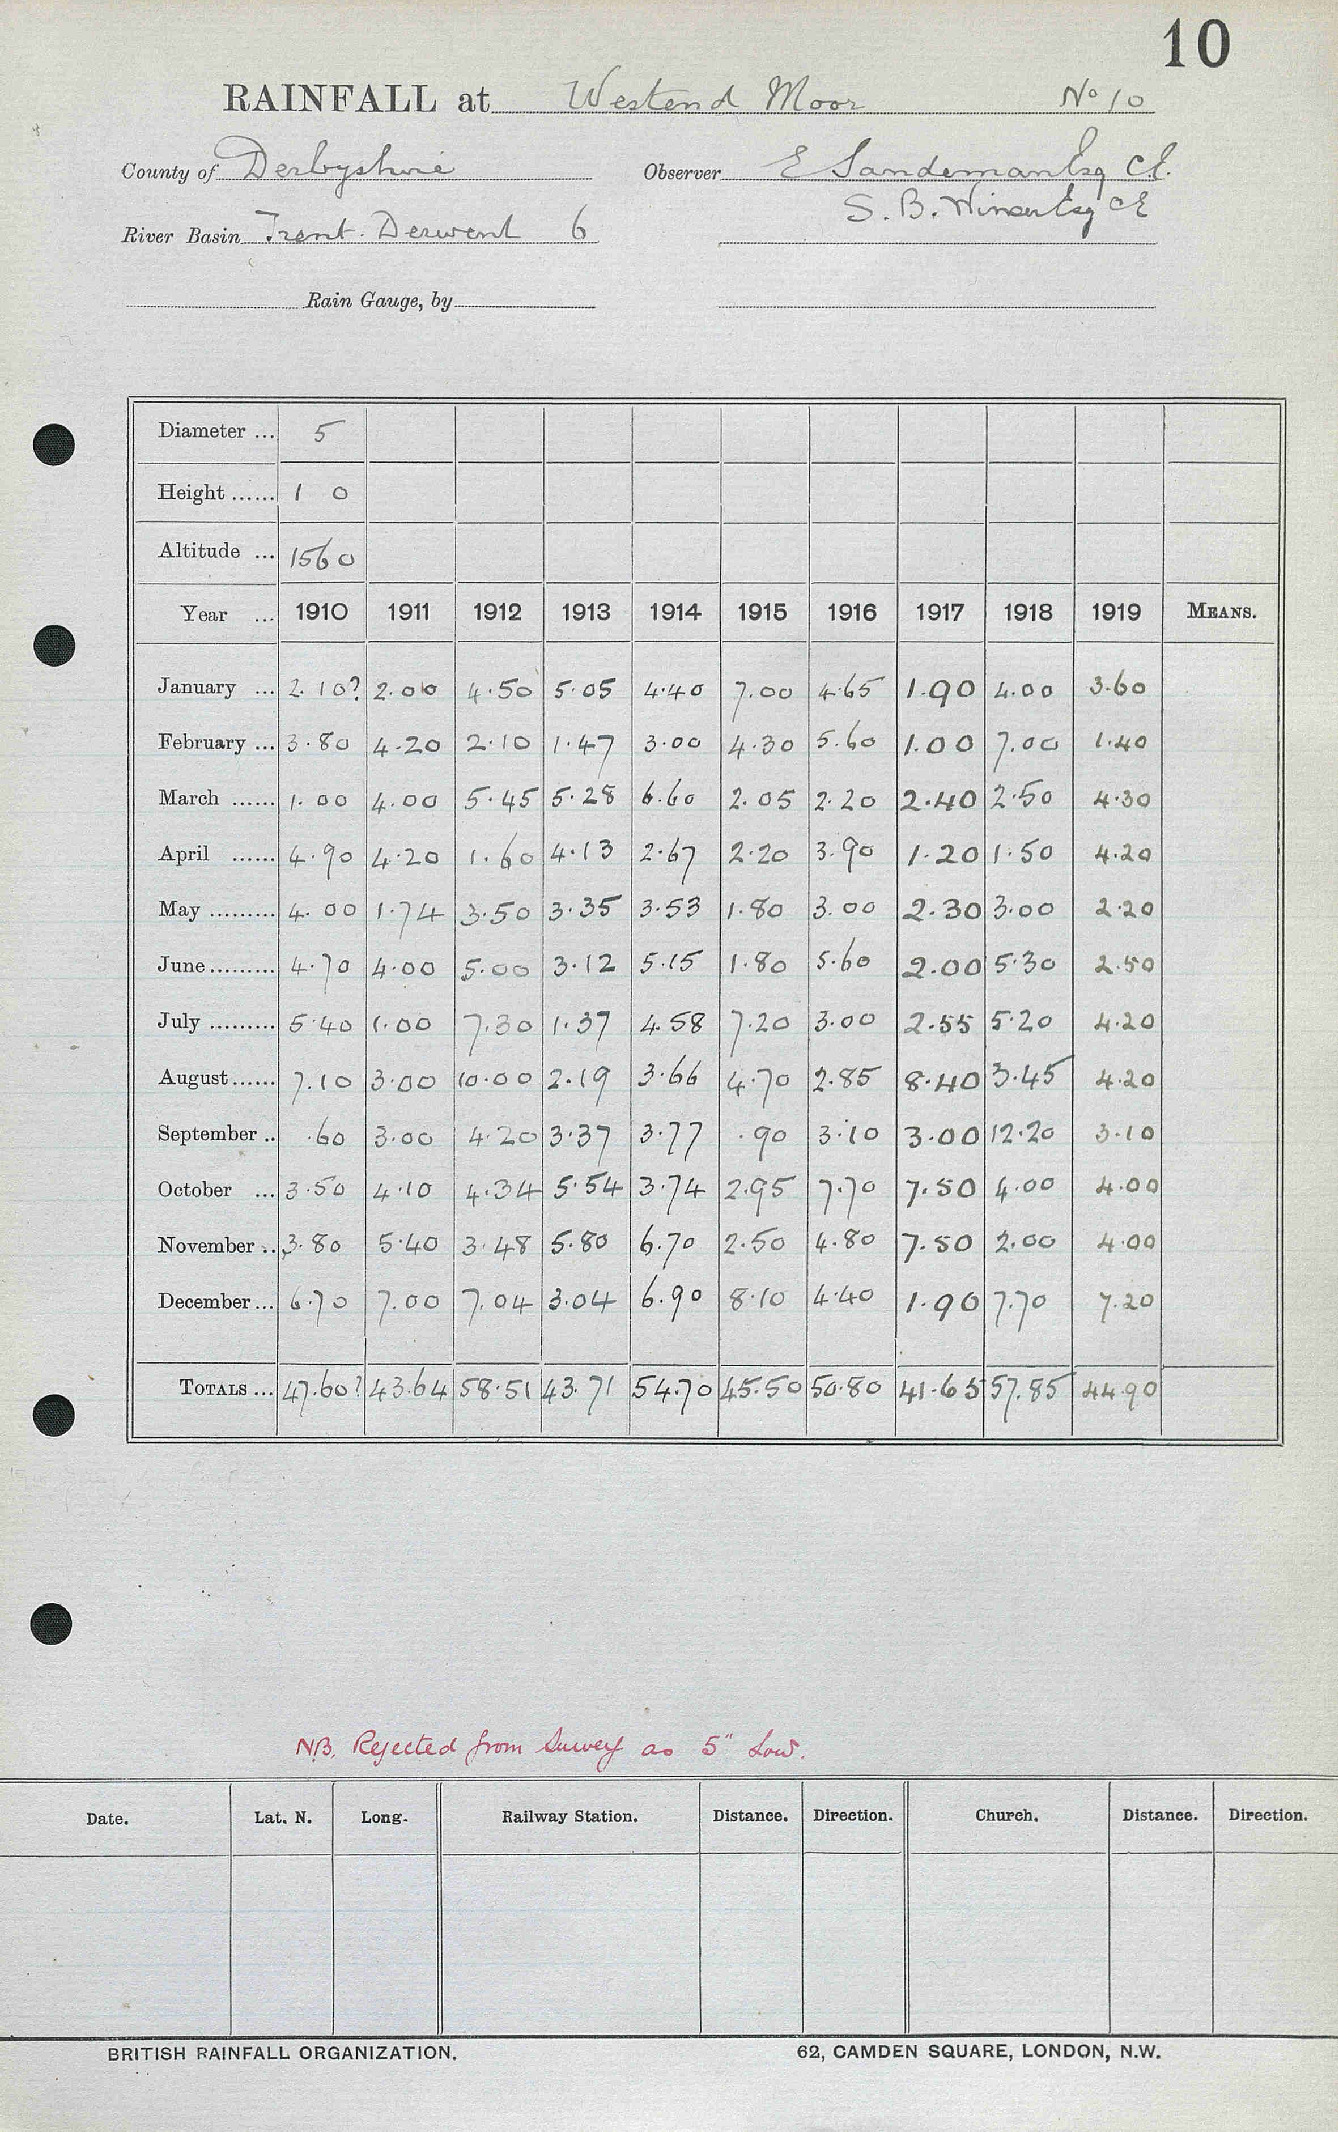 10
RAINFALL at Westend Moor No 10
County of Derbyshire Observer E Sandeman Esq CE.
S. B. Winser Esq CE
River Basin Trent. Derwent 6
Rain Gauge, by
Diameter ... 5
Height ...... 1 0
Altitude ... 1560
Year ... 1910 1911 1912 1913 1914 1915 1916 1917 1918 1919 MEANS.
January ... 2.10? 2.00 4.50 5.05 4.40 7.00 4.65 1.90 4.00 3.60
February ... 3.80 4.20 2.10 1.47 3.00 4.30 5.60 1.00 7.00 1.40
March ...... 1.00 4.00 5.45 5.28 6.60 2.05 2.20 2.40 2.50 4.30
April ...... 4.90 4.20 1.60 4.13 2.67 2.20 3.90 1.20 1.50 4.20
May ......... 4.00 1.74 3.50 3.35 3.53 1.80 3.00 2.30 3.00 2.20
June ......... 4.70 4.00 5.00 3.12 5.15 1.80 5.60 2.00 5.30 2.50
July ......... 5.40 1.00 7.30 1.37 4.58 7.20 3.00 2.55 5.20 4.20
August ...... 7.10 3.00 10.00 2.19 3.66 4.70 2.85 8.40 3.45 4.20
September .. .60 3.00 4.20 3.37 3.77 .90 3.10 3.00 12.20 3.10
October ... 3.50 4.10 4.34 5.54 3.74 2.95 7.70 7.50 4.00 4.00
November .. 3.80 5.40 3.48 5.80 6.70 2.50 4.80 7.50 2.00 4.00
December ... 6.70 7.00 7.04 3.04 6.90 8.10 4.40 1.90 7.70 7.20
TOTALS ... 47.60? 43.64 58.51 43.71 54.70 45.50 50.80 41.65 57.85 44.90
N.B. Rejected from Survey as 5" Low.
Date. Lat. N. Long. Railway Station. Distance. Direction. Church. Distance. Direction.
BRITISH RAINFALL ORGANIZATION. 62, CAMDEN SQUARE, LONDON, N.W.